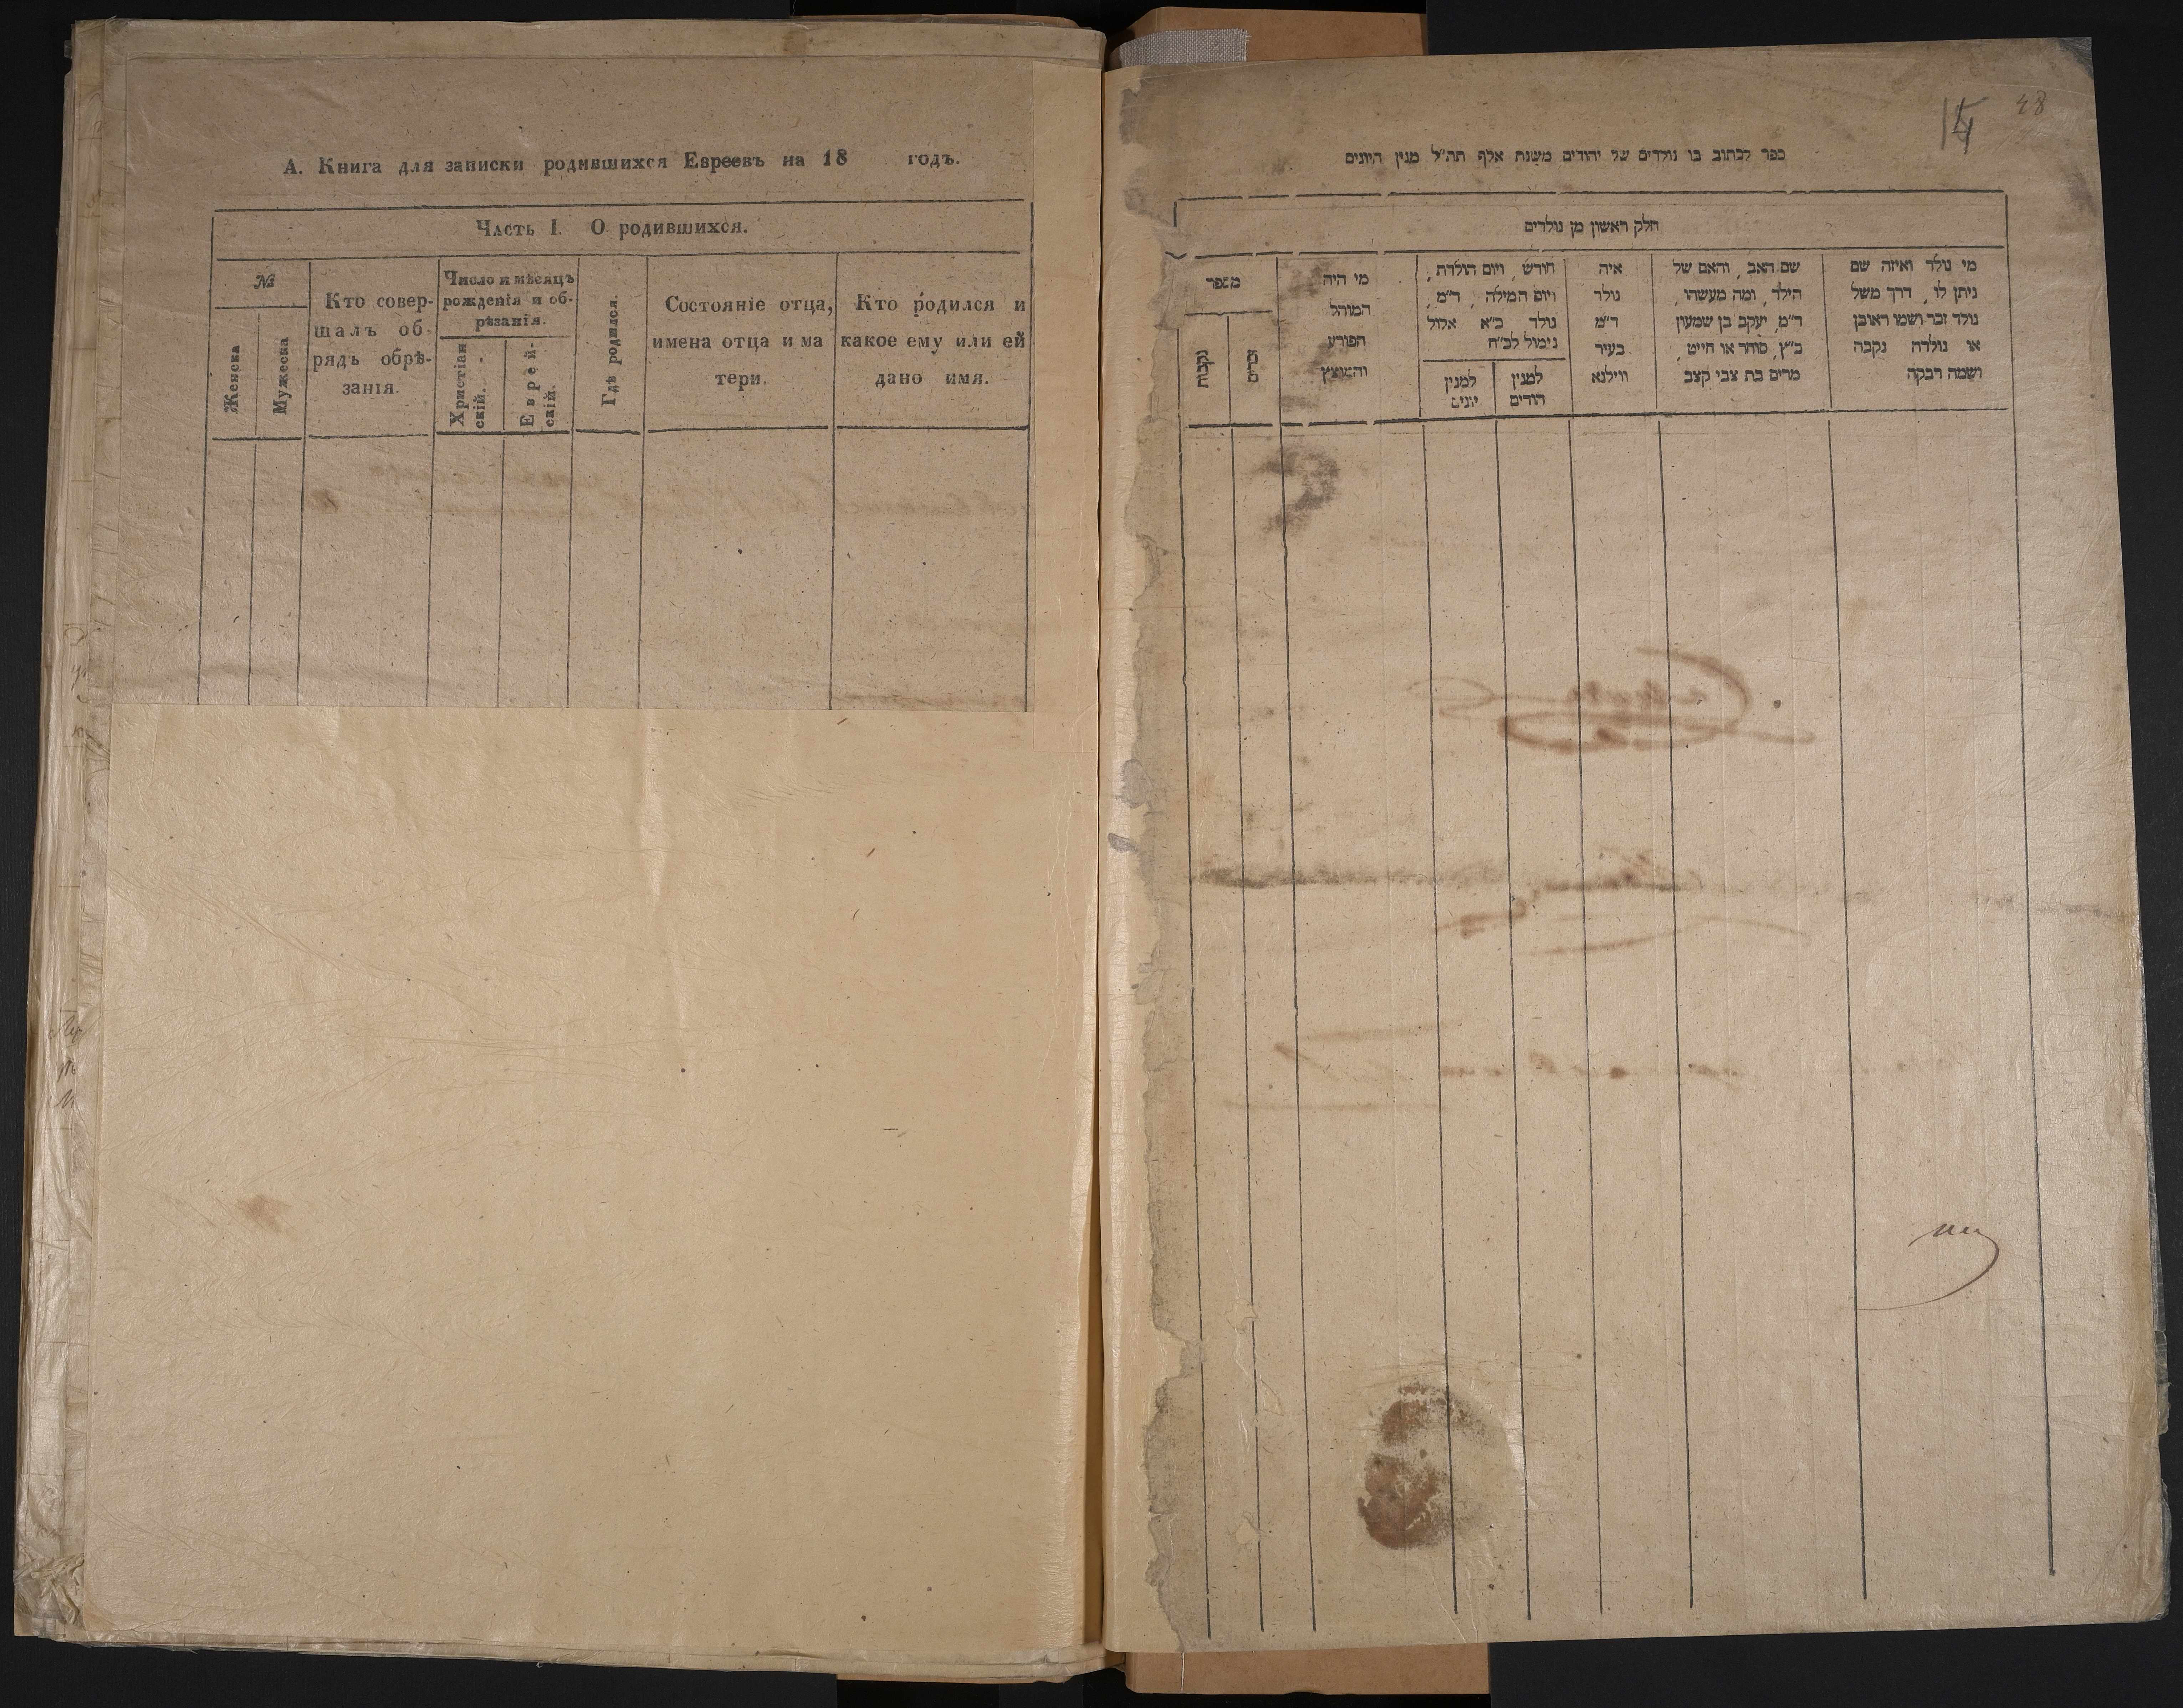 А. Книга для записки родившихся Евреевъ на 18 годъ.
Часть I. О родившихся.
№
Женска
Мужеска
Кто совер-
шалъ об-
рядъ обрѣ-
занія.
Число и мѣсяцъ
рожденія и об-
рѣзанія.
Христіан
скій.
Еврей-
скій.
Гдѣ родился.
Состояніе отца,
имена отца и ма
тери.
Кто родился и
какое ему или ей
дано имя.
48
ספר לכתוב בו נולדים של יהודים משנת אלף תת״ל מנין היונים
חלק ראשון מן נולדים
מי נולד ואיזה שם
ניתן לו, דרך משל
נולד זכר ושמו ראובן
או נולדה נקבה
ושמה רבקה
שם האב, והאם של
הילד, ומה מעשהו,
ד״מ, יעקב בן שמעון
כ״ץ, סוחר או חייט,
מרים בת צבי קצב
איה
נולד
ד״מ
בעיר
ווילנא
חודש, ויום הולדת,
ויום המילה, ד״מ,
נולד כ״א אלול
נימול לכ״ח
למנין
הודים
למנין
יונים
מי היה
המוהל
הפורע
והמוצץ
מספר
זכרים
נקבות